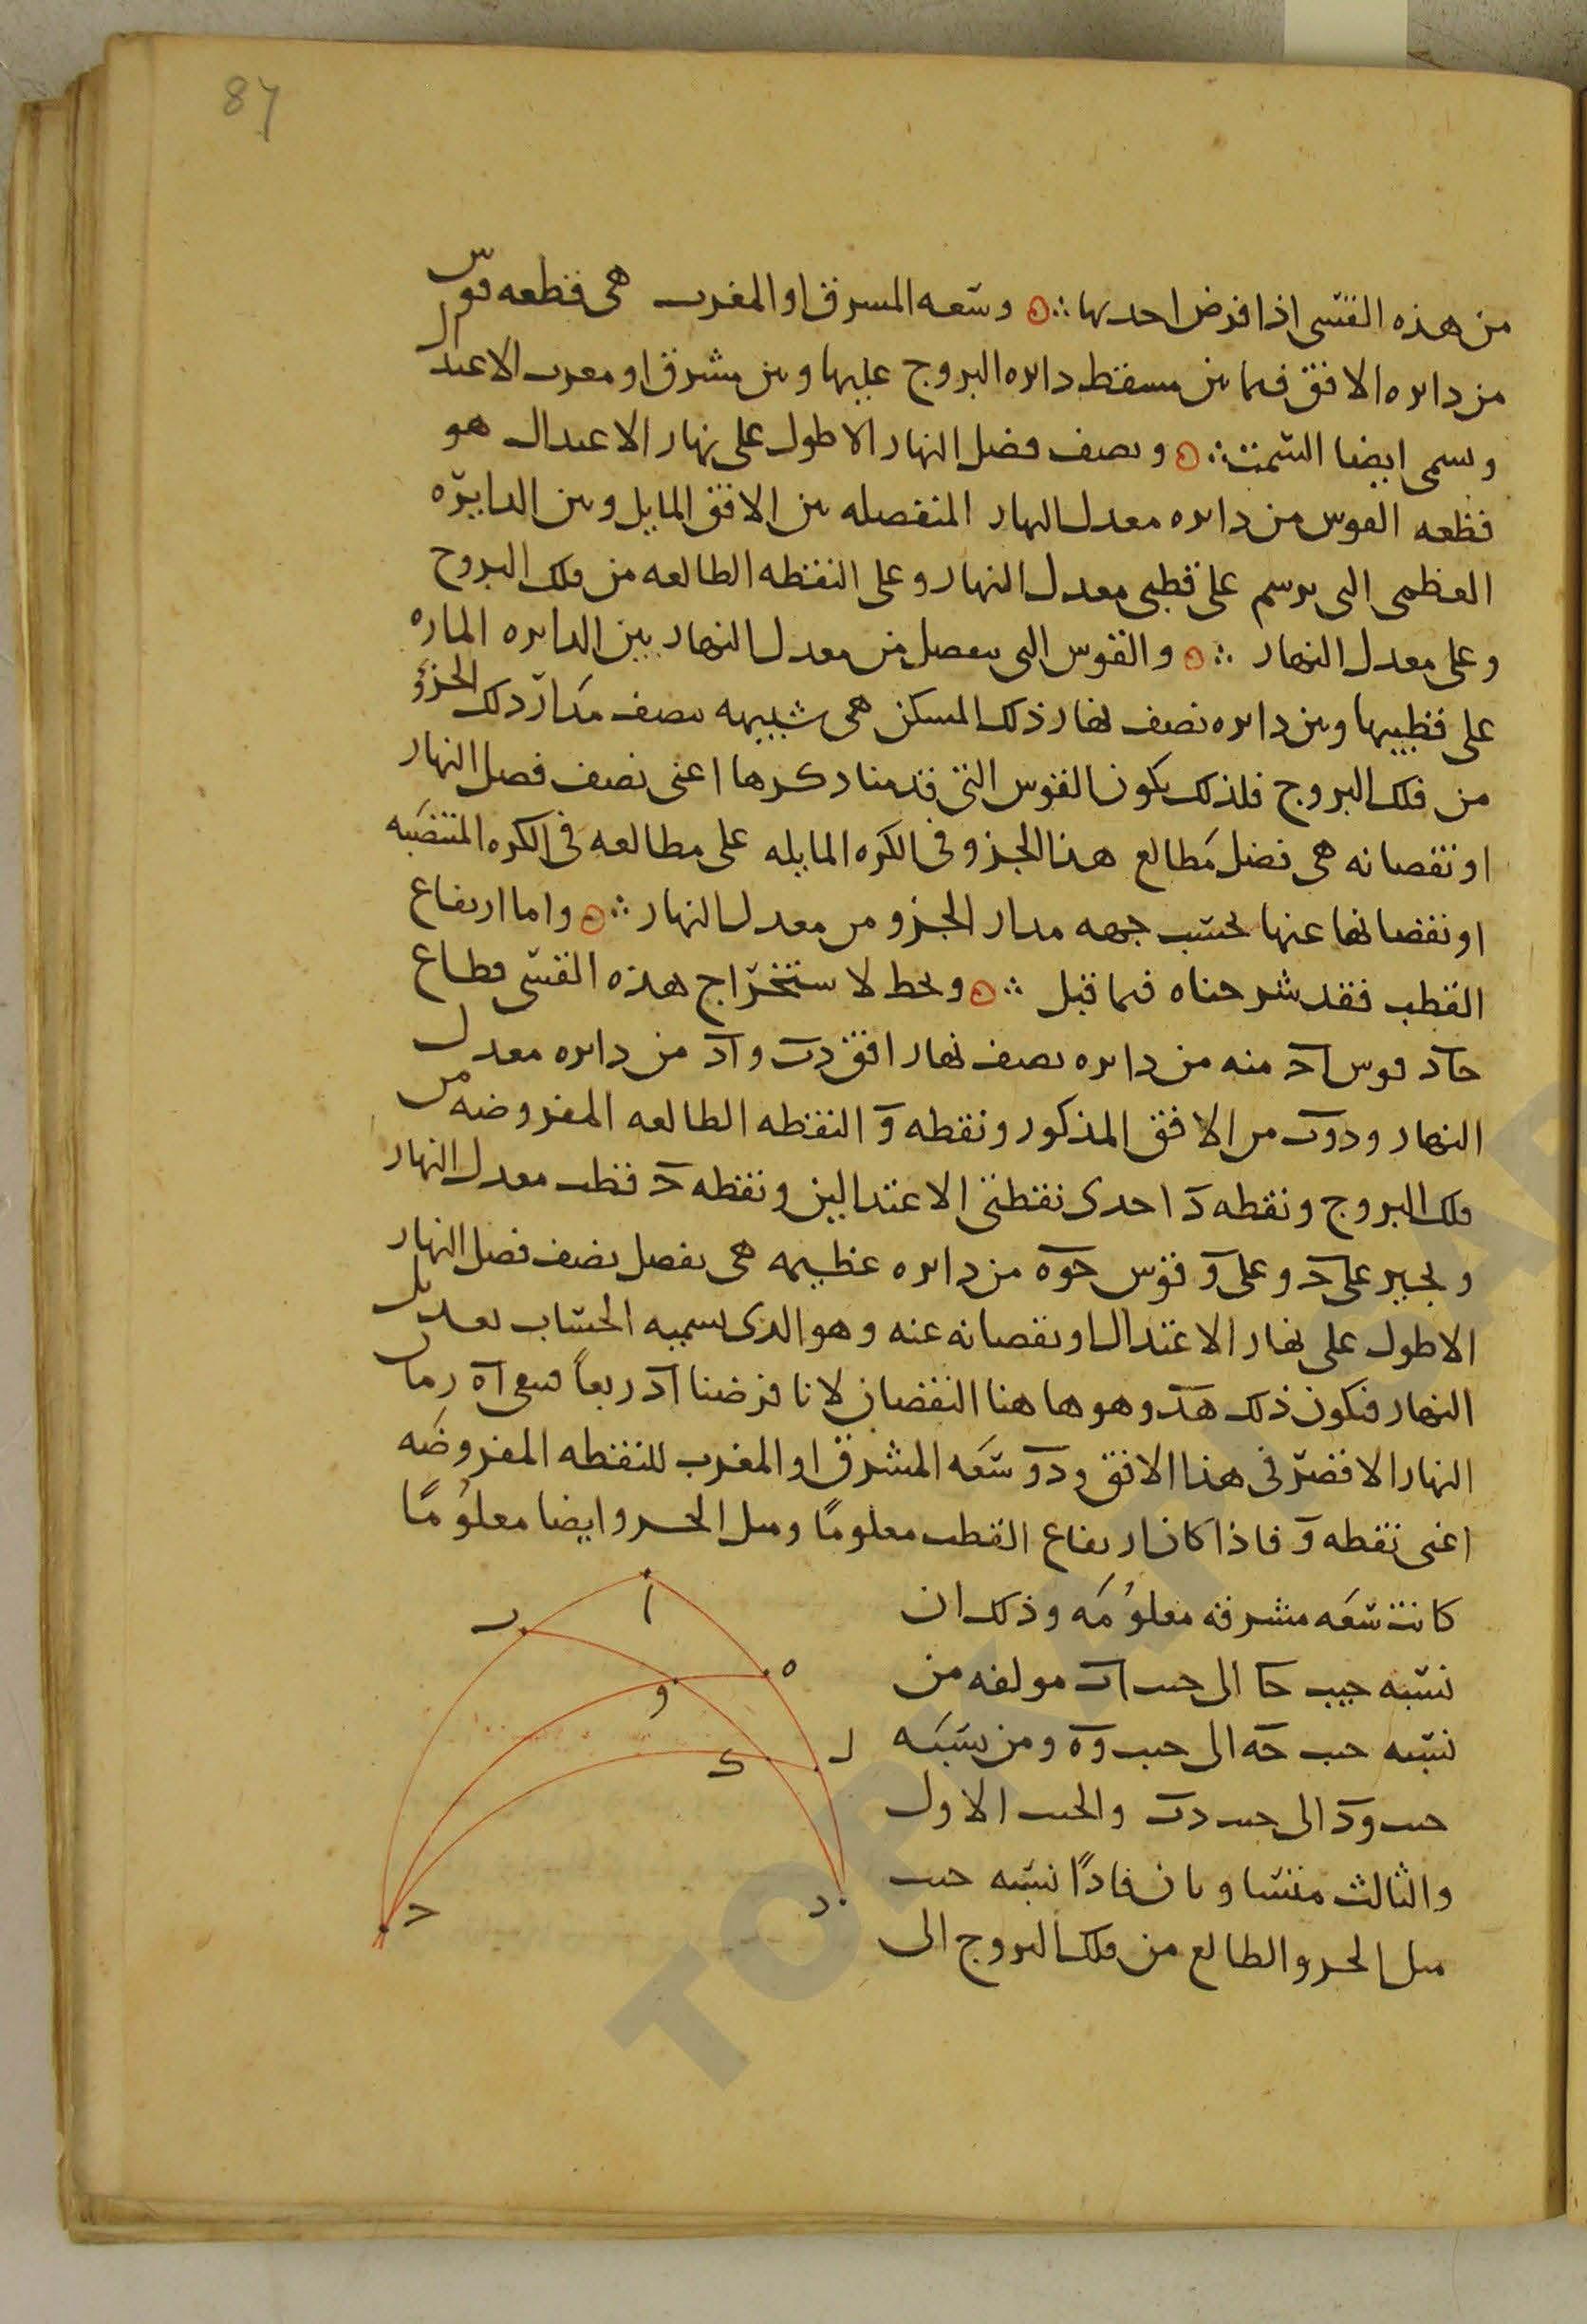 87
من هذه القسى اذا فرض احدىها ∴ وسعه المسرق او المغرب هى قطعه قوس
من دايره الافق فىما بين مسقط دايره البروج عليها وبين مشرق او مغرب الاعتدال
ويسمى ايضا السمت ∴ ونصف فضل النهار الاطول على نهار الاعتدال هو
قطعه القوس من دايره معدل النهار المنفصله بين الافق المايل وبين الدايره
العظمى التى ترسم على قطبى معدل النهار وعلى النقطه الطالعه من فلك البروج
وعلى معدل النهار ∴ والقوس التى تنفصل من معدل النهار بين الدايره الماره
على قطبيها وبين دايره نصف نهار ذلك المسكن هى شبيهه بنصف مدار ذلك الجزو
من فلك البروج فلذلك يكون القوس التى قدمنا ذكرها اعنى نصف فضل النهار
او نقصانه هى فضل مطالع هذا الجزو فى الكره المايله على مطالعه فى الكره المنتصبه
او نقصانها عنها بحسب جهه مدار الجزو من معدل النهار ∴ واما ارتفاع
القطب فقد شرحناه فىما قبل ∴ ونخط لاستخراج هذه القسى قطاع
حاد قوس اح منه من دايره نصف نهار افق دب واد من دايره معدل
النهار ودوب من الافق المذكور ونقطه و النقطه الطالعه المفروضه من
فلك البروج ونقطه د احدى نقطتى الاعتدالين ونقطه ح قطب معدل النهار
ونجيز على ح وعلى و قوس حوه من دايره عظيمه هى تفصل نصف فضل النهار
الاطول على نهار الاعتدال او نقصانه عنه وهو الذى يسميه الحساب تعديل
النهار فيكون ذلك هد وهو هاهنا النقصان لانا فرضنا اد ربعاً فبقى اه زمان
النهار الاقصر فى هذا الافق ودو سعه المشرق او المغرب للنقطه المفروضه
اعنى نقطه و فاذا كان ارتفاع القطب معلومًا وميل الجزو ايضا معلومًا
كانت سعه مشرقه معلومه وذلك ان
نسبه جيب حا الى جيب اب مولفه من
نسبه جيب حه الى جيب وه ومن نسبه
جيب ود الى جيب دب والجيب الاول
والثالث متساويان فاذًا نسبه جيب
ميل الجزو الطالع من فلك البروج الى
ا
ب
ه
و
ل
ك
د
ح